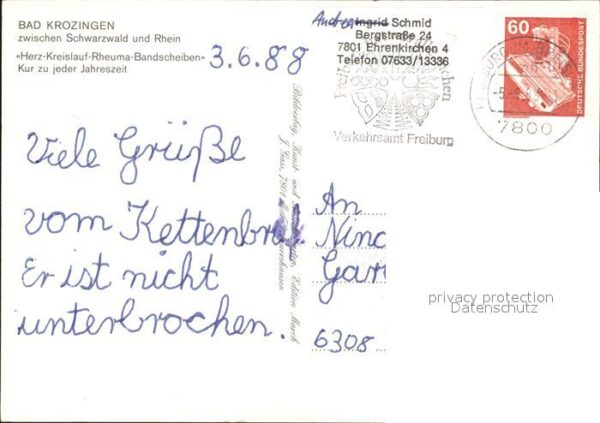 BAD KROZINGEN
zwischen Schwarzwald und Rhein
«Herz-Kreislauf-Rheuma-Bandscheiben»
Kur zu jeder Jahreszeit
3.6.88
Andrea Ingrid Schmid
Bergstraße 24
7801 Ehrenkirchen 4
Telefon 07633/13336
Verkehrsamt Freiburg
60
DEUTSCHE BUNDESPOST
7800
Viele Grüße
vom Kettenbr
Er ist nicht
unterbrochen.
An
Ninc
Gar
6308
privacy protection
Datenschutz